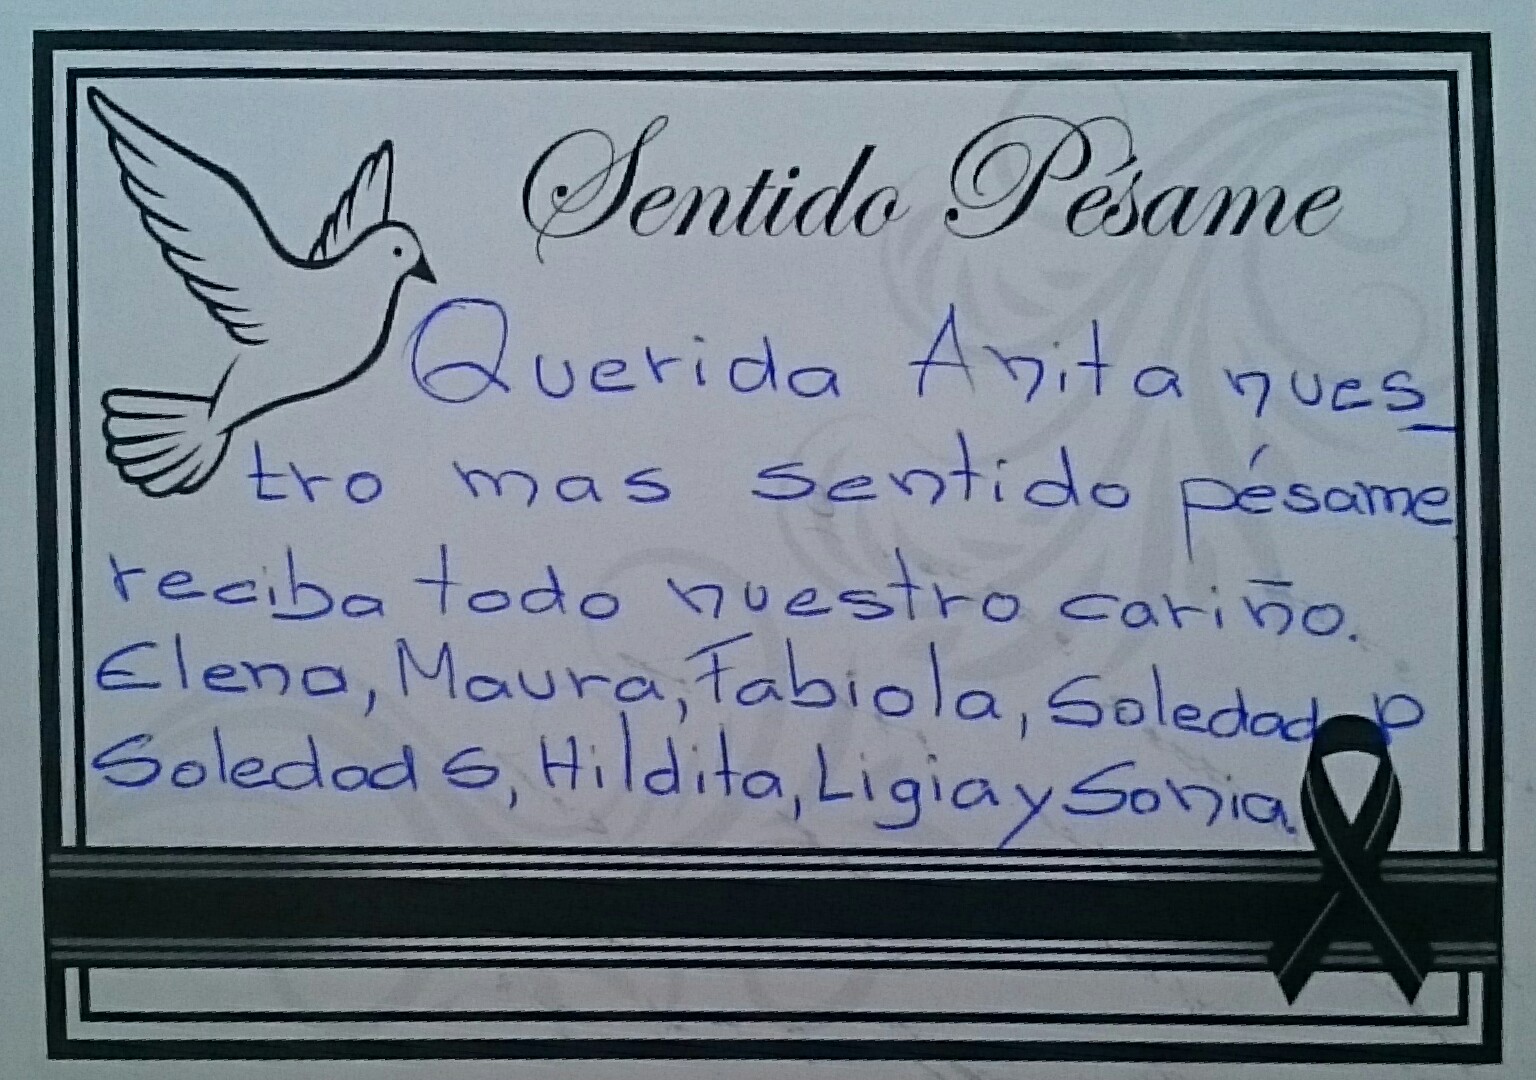 Sentido Pésame
Querida Anita nues_
tro mas sentido pésame
reciba todo nuestro cariño.
Elena, Maura, Fabiola, Soledad P
Soledad S, Hildita, Ligia y Sonia.